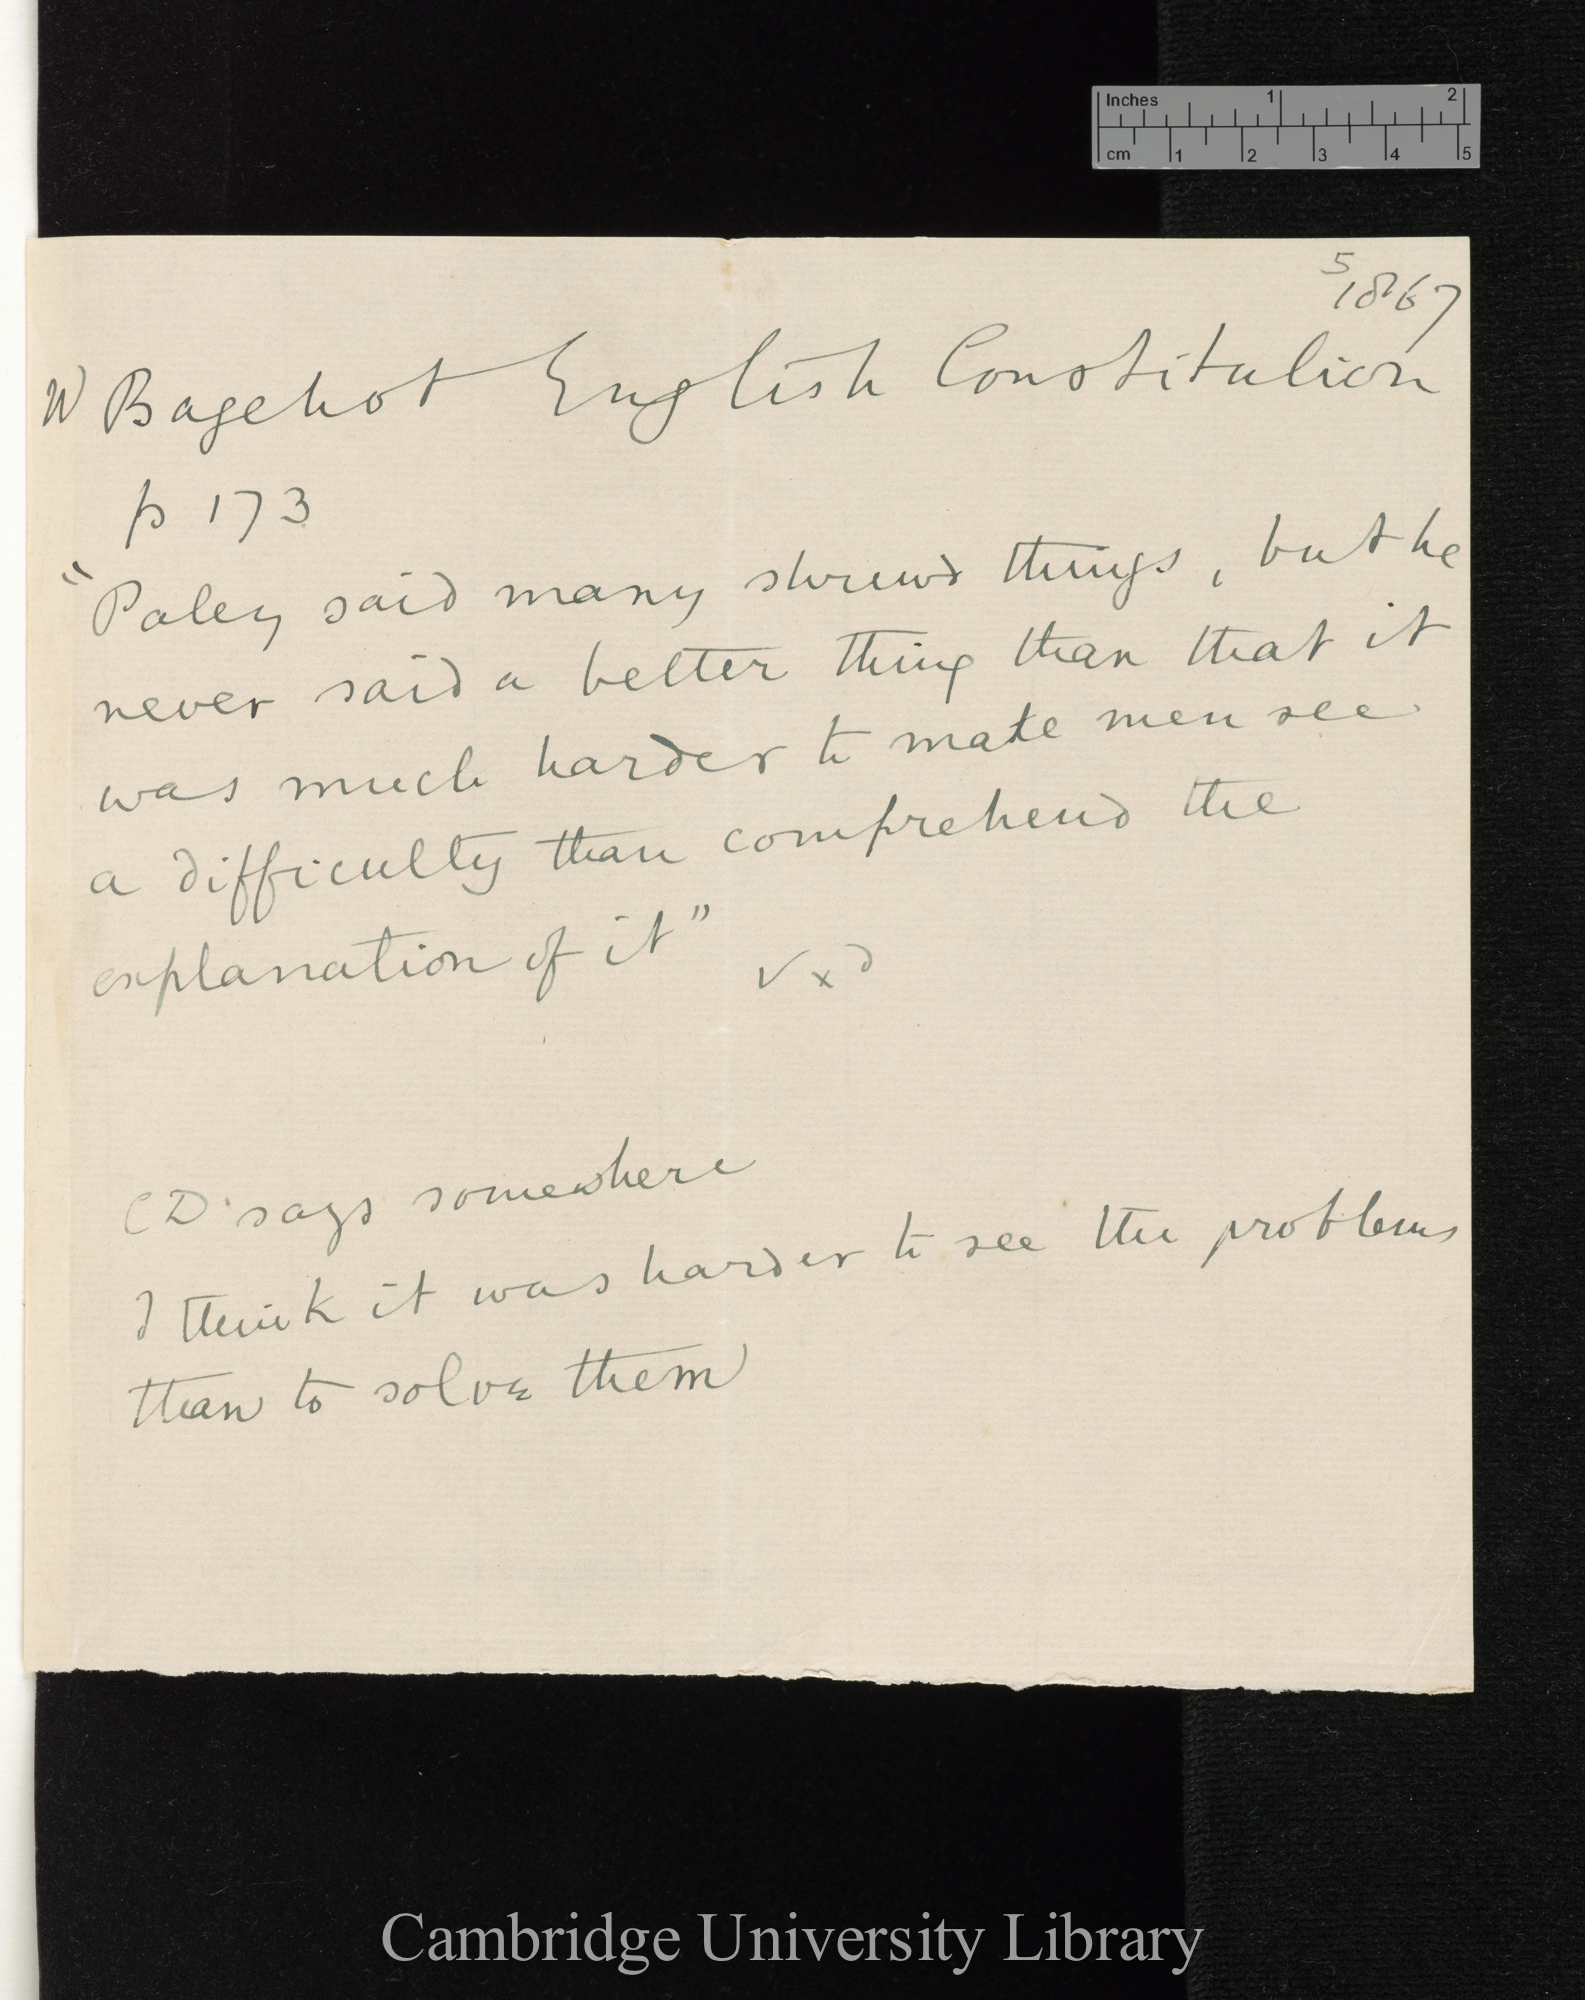 Inches 1 2
cm 1 2 3 4 5
5
1867
W Bagehot English Constitution
p 173
"Paley said many shrewd things, but he
never said a better thing than that it
was much harder to make men see
a difficulty than comprehend the
explanation of it" √xd
CD says somewhere
I think it was harder to see the problems
than to solve them
Cambridge University Library